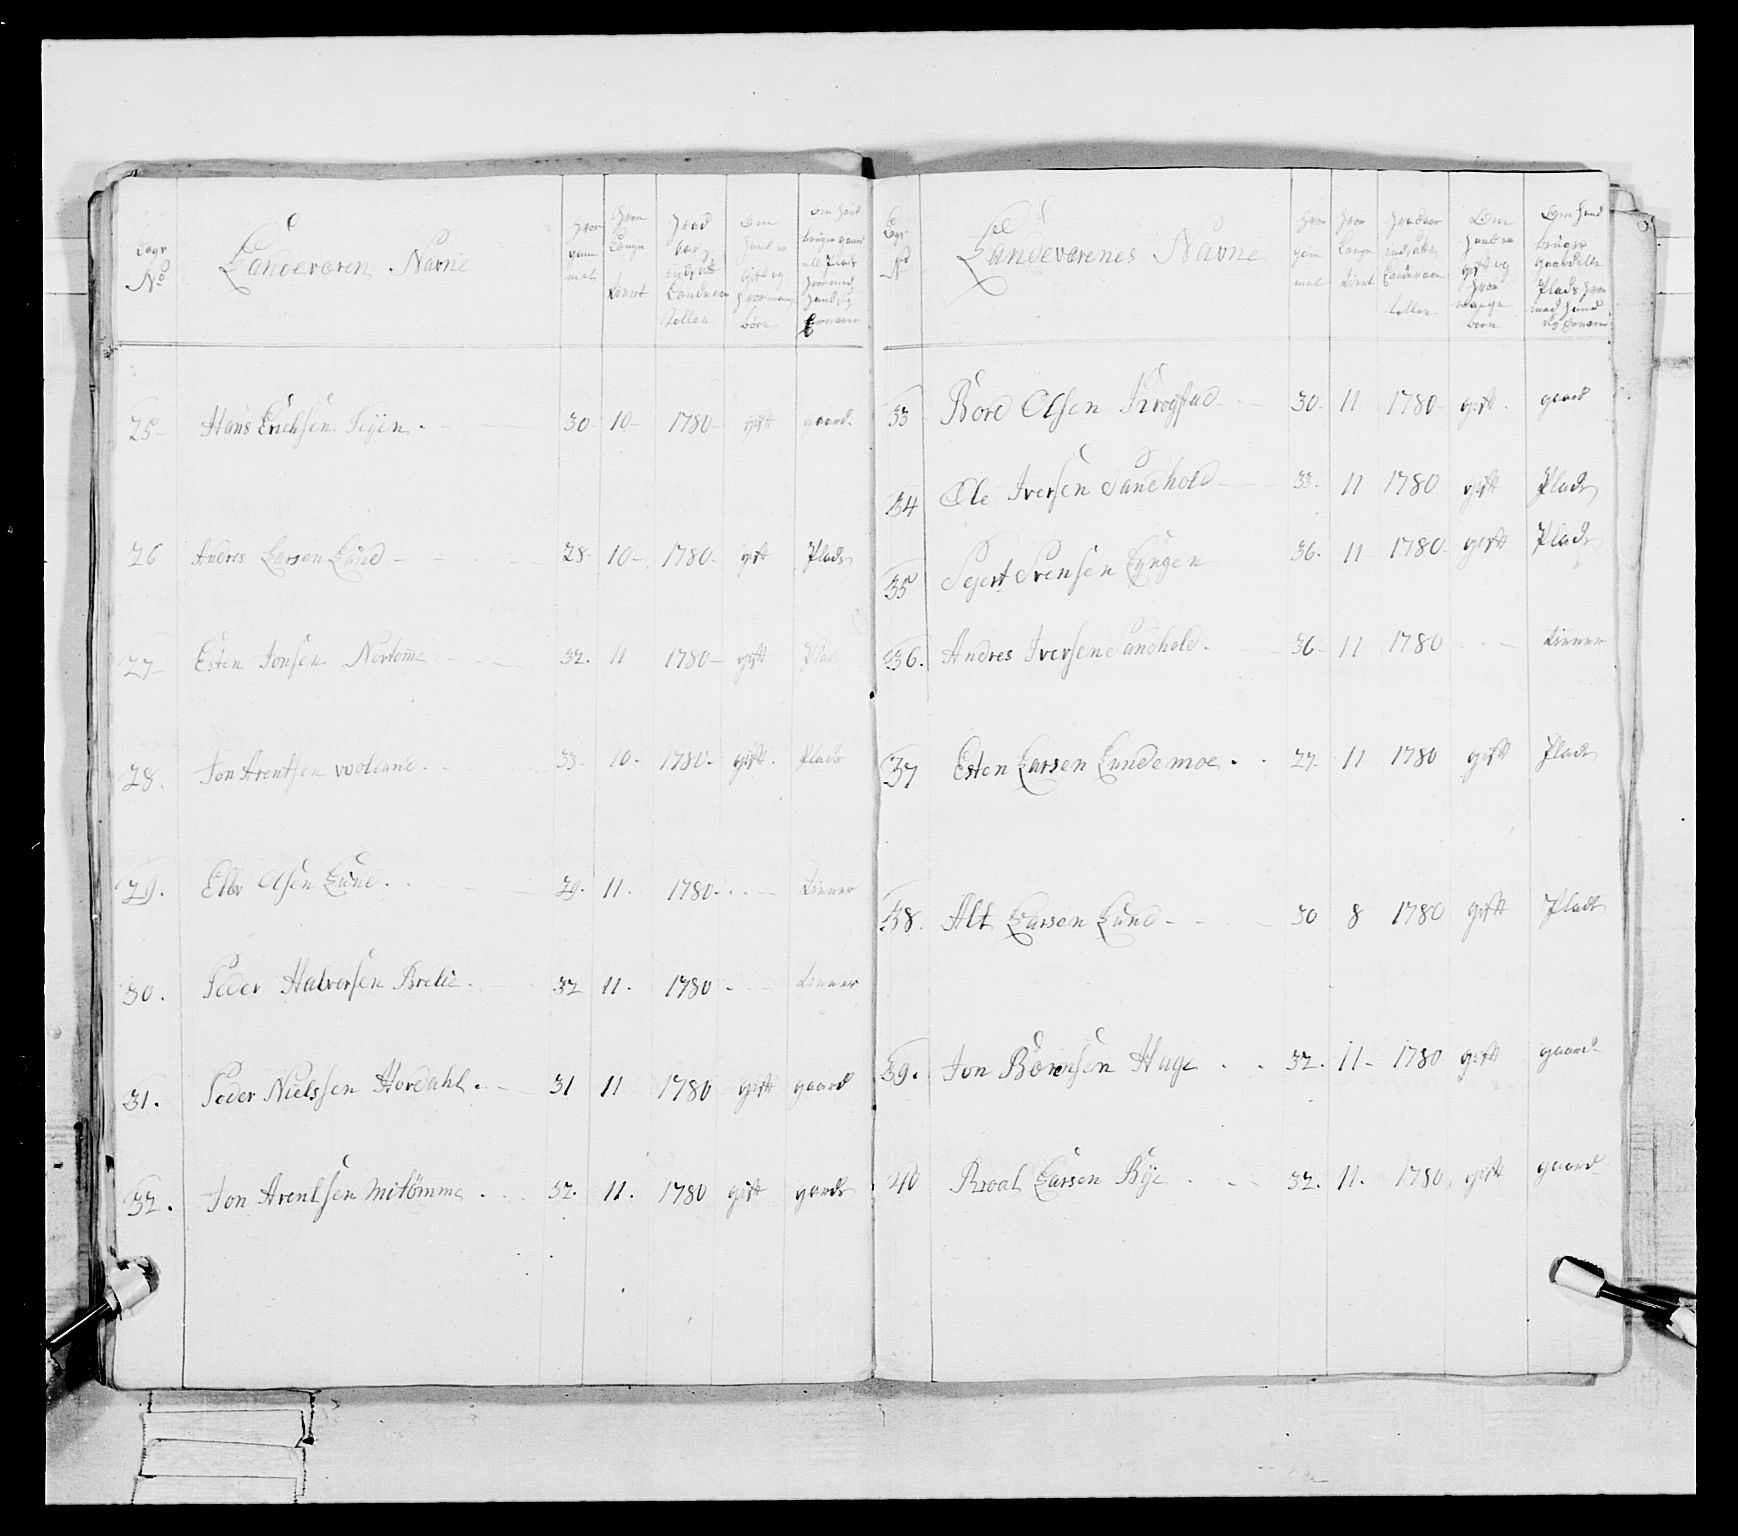 Legs No
Landeværen Navne
hvor gammel
hvor Længe tient
hvad aar indsatt Landeværn Rollen
Om hand er gift og hvor mange børn
om hand bruger gaard ell Plads hvor med hand sig Ernærer
25 Hans Erichsen 30 10 1780 gift gaard
26 Andres Larsen Lund 28 10 1780 gift Plads
27 Esten Jonsen Nortømme 32 11 1780 gift Plads
28 Jon Arentsen Woland 33 10 1780 gift Plads
29. Olsen Lund 29 11 1780 tiener
30. Peder Halvorsen Brelie 32 11 1780 tiener
31. Peder Nielssen Hordahl 31 11 1780 gift gaard
32. Jon Arentsen Mitømme 32 11 1780 gift gaard
Legs No
Landeværenes Navne
hvor gammel
hvor Længe tient
hvad aar indsatte Landeværn Rollen
Om hand er gift og hvor mange børn
Om hand bruger gaard elle Plads hvor med hand sig Ernærer
33 Bord Olsen Krogstad 30 11 1780 gift gaard
34 Ole Iversen Sandhold 33 11 1780 gift Plads
35 Sejert Svensen Lyngen 36 11 1780 gift Plads
36. Andres Iversen Sandhold 36 11 1780 tiener
37 Esten Larsen Lundemoe 27 11 1780 gift Plads
38. Alt Larsen Lund 30 8 1780 gift Plads
39. Jon Børensen Hage 32 11 1780 gift gaard
40 Roal Larsen Rye 32 11 1780 gift gaard